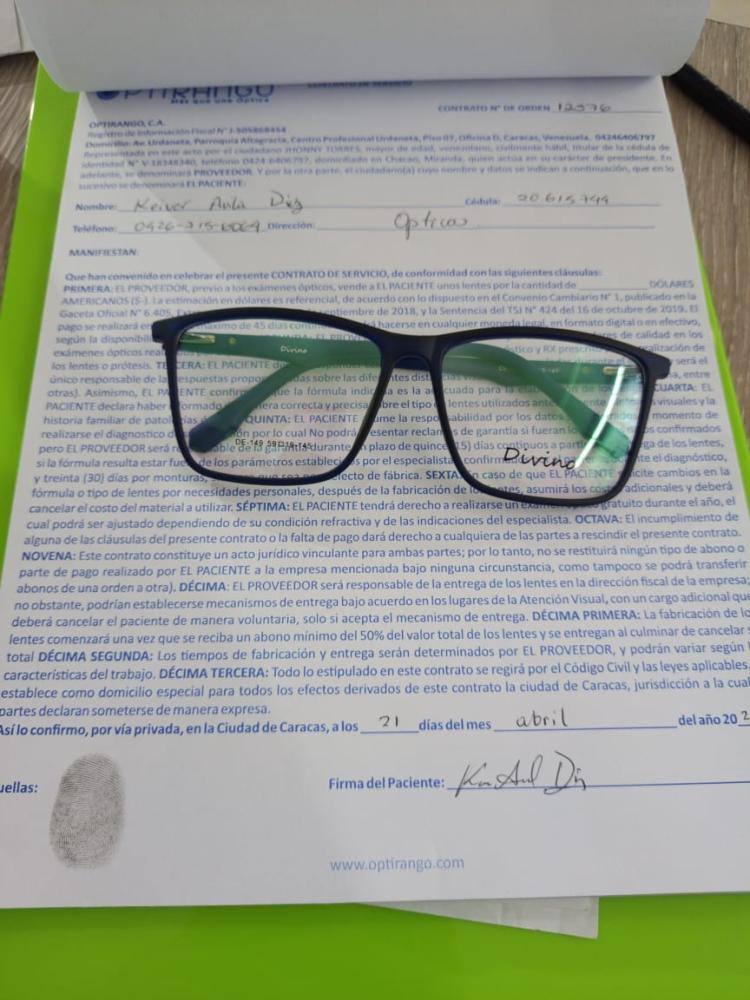 OPTIRANGO
Más que una Óptica
CONTRATO DE SERVICIO
CONTRATO N° DE ORDEN 12576
OPTIRANGO, C.A.
Registro de Información Fiscal N° J-505868454
Domicilio: Av. Urdaneta, Parroquia Altagracia, Centro Profesional Urdaneta, Piso 07, Oficina D, Caracas, Venezuela. 04246406797
Representada en este acto por el ciudadano JHONNY TORRES, mayor de edad, venezolano, civilmente hábil, titular de la cédula de
identidad N° V-18348340, teléfono 0424-6406797, domiciliado en Chacao, Miranda, quien actúa en su carácter de presidente. En
adelante, se denominará PROVEEDOR. Y por la otra parte, el ciudadano(a) cuyo nombre y datos se indican a continuación, que en lo
sucesivo se denominará EL PACIENTE:
Nombre: Keiver Díz Cédula: 20.615.744
Teléfono: 0426- Dirección: Opticas
MANIFIESTAN:
Que han convenido en celebrar el presente CONTRATO DE SERVICIO, de conformidad con las siguientes cláusulas:
PRIMERA: EL PROVEEDOR, previo a los exámenes ópticos, vende a EL PACIENTE unos lentes por la cantidad de DÓLARES
AMERICANOS ($-). La estimación en dólares es referencial, de acuerdo con lo dispuesto en el Convenio Cambiario N° 1, publicado en la
Gaceta Oficial N° 6.405, septiembre de 2018, y la Sentencia del TSJ N° 424 del 16 de octubre de 2019. El
pago se realizará en máximo de 45 días hacerse en cualquier moneda legal, en formato digital o en efectivo,
según la disponibilidad de calidad en los
exámenes ópticos y RX realización de
los lentes o prótesis. TERCERA: EL PACIENTE será el
único responsable de las respuestas sobre las diferentes entre
otras). Asimismo, EL PACIENTE confirma que la fórmula indicada es la adecuada para la CUARTA: EL
PACIENTE declara haber informado manera correcta y precisa sobre el tipo de lentes utilizados visuales y la
historia familiar de QUINTA: EL PACIENTE asume la responsabilidad por los datos momento de
realizarse el diagnostico por lo cual No podrá presentar reclamos de garantía si fueran confirmados
pero EL PROVEEDOR será responsable de la garantía durante un plazo de quince (15) días continuos a partir entrega de los lentes,
si la fórmula resulta estar fuera de los parámetros establecidos por el especialista el diagnóstico,
y treinta (30) días por monturas, defecto de fábrica. SEXTA: En caso de que EL PACIENTE solicite cambios en la
fórmula o tipo de lentes por necesidades personales, después de la fabricación de los lentes, asumirá los costos adicionales y deberá
cancelar el costo del material a utilizar. SÉPTIMA: EL PACIENTE tendrá derecho a realizarse un examen gratuito durante el año, el
cual podrá ser ajustado dependiendo de su condición refractiva y de las indicaciones del especialista. OCTAVA: El incumplimiento de
alguna de las cláusulas del presente contrato o la falta de pago dará derecho a cualquiera de las partes a rescindir el presente contrato.
NOVENA: Este contrato constituye un acto jurídico vinculante para ambas partes; por lo tanto, no se restituirá ningún tipo de abono o
parte de pago realizado por EL PACIENTE a la empresa mencionada bajo ninguna circunstancia, como tampoco se podrá transferir
abonos de una orden a otra). DÉCIMA: EL PROVEEDOR será responsable de la entrega de los lentes en la dirección fiscal de la empresa;
no obstante, podrían establecerse mecanismos de entrega bajo acuerdo en los lugares de la Atención Visual, con un cargo adicional que
deberá cancelar el paciente de manera voluntaria, solo si acepta el mecanismo de entrega. DÉCIMA PRIMERA: La fabricación de lo
lentes comenzará una vez que se reciba un abono mínimo del 50% del valor total de los lentes y se entregan al culminar de cancelar
total DÉCIMA SEGUNDA: Los tiempos de fabricación y entrega serán determinados por EL PROVEEDOR, y podrán variar según
características del trabajo. DÉCIMA TERCERA: Todo lo estipulado en este contrato se regirá por el Código Civil y las leyes aplicables.
establece como domicilio especial para todos los efectos derivados de este contrato la ciudad de Caracas, jurisdicción a la cual
partes declaran someterse de manera expresa.
Así lo confirmo, por vía privada, en la Ciudad de Caracas, a los 21 días del mes abril del año 202
uellas:
Firma del Paciente:
www.optirango.com
Divino
DE-149 Divino